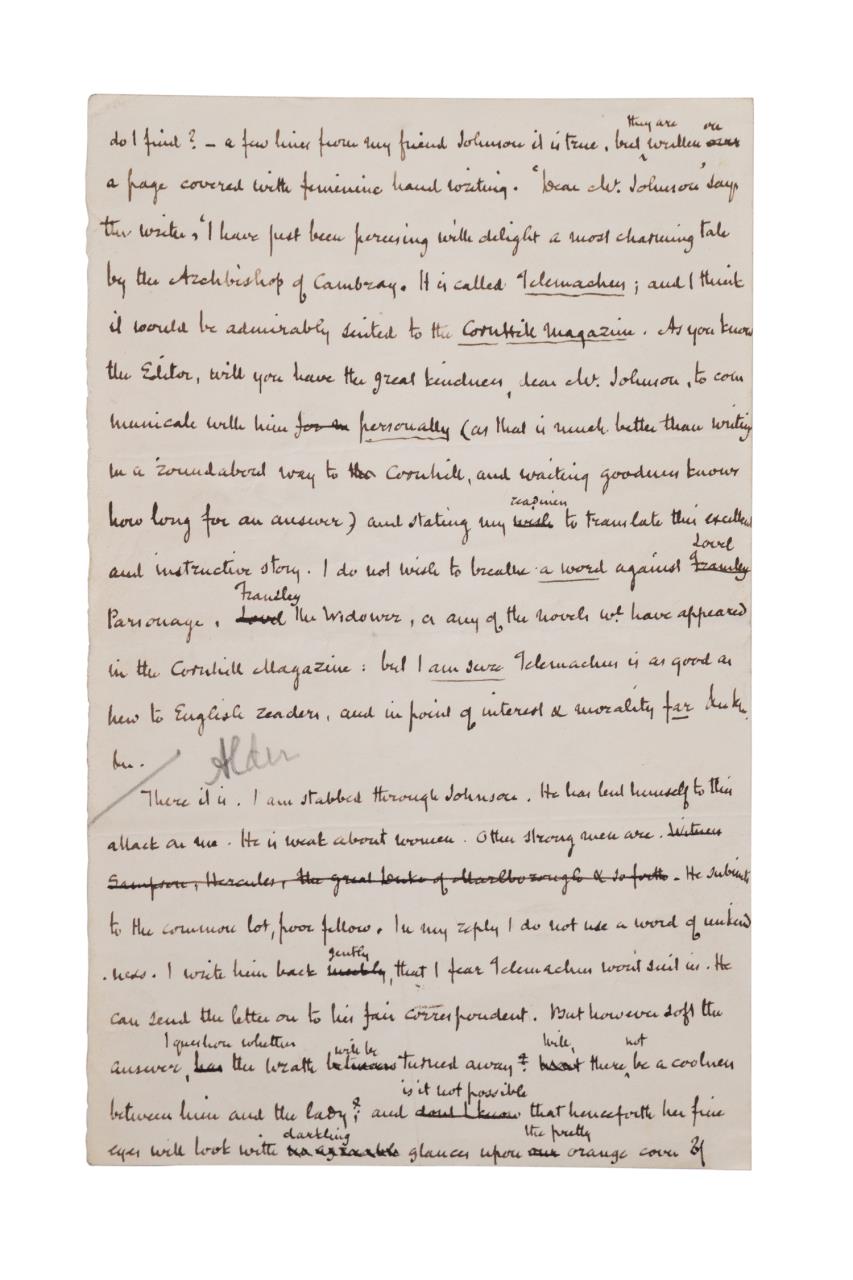 they are on
do I find? – a few lines from my friend Johnson it is true, but written over
a page covered with feminine hand writing. 'Dear Mr. Johnson' says
the writer, 'I have just been perusing with delight a most charming tale
by the Archbishop of Cambray. It is called Telemachus; and I think
it would be admirably suited to the Cornhill Magazine. As you know
the Editor, will you have the great kindness, dear Mr. Johnson, to com
municate with him personally (as that is much better than writing
in a roundabout way to the Cornhill, and waiting goodness knows
readiness
how long for an answer) and stating my wish to translate this excellent
Lovel
and instructive story. I do not wish to breathe a word against Framley
Framley
Parsonage, Lovel The Widower, or any of the novels wh. have appeared
in the Cornhill Magazine: but I am sure Telemachus is as good as
new to English readers, and in point of interest & morality far &c &c
&c.
Alder
There it is. I am stabbed through Johnson. He has lent himself to this
attack on me. He is weak about women. Other strong men are. Witness
Sampson, Hercules, the great Duke of Marlborough & so forth. He submits
to the common lot, poor fellow. In my reply I do not use a word of unkind
.ness. I write him back
gently
meekly, that I fear Telemachus won't suit us. He
can send the letter on to his fair correspondent. But however soft the
I question whether will be Will not
answer, has the wrath between turned away? there be a coolness
is it not possible
between him and the lady? and dont I know that henceforth her fine
darkling the pretty
eyes will look with no agreeable glances upon our orange cover of